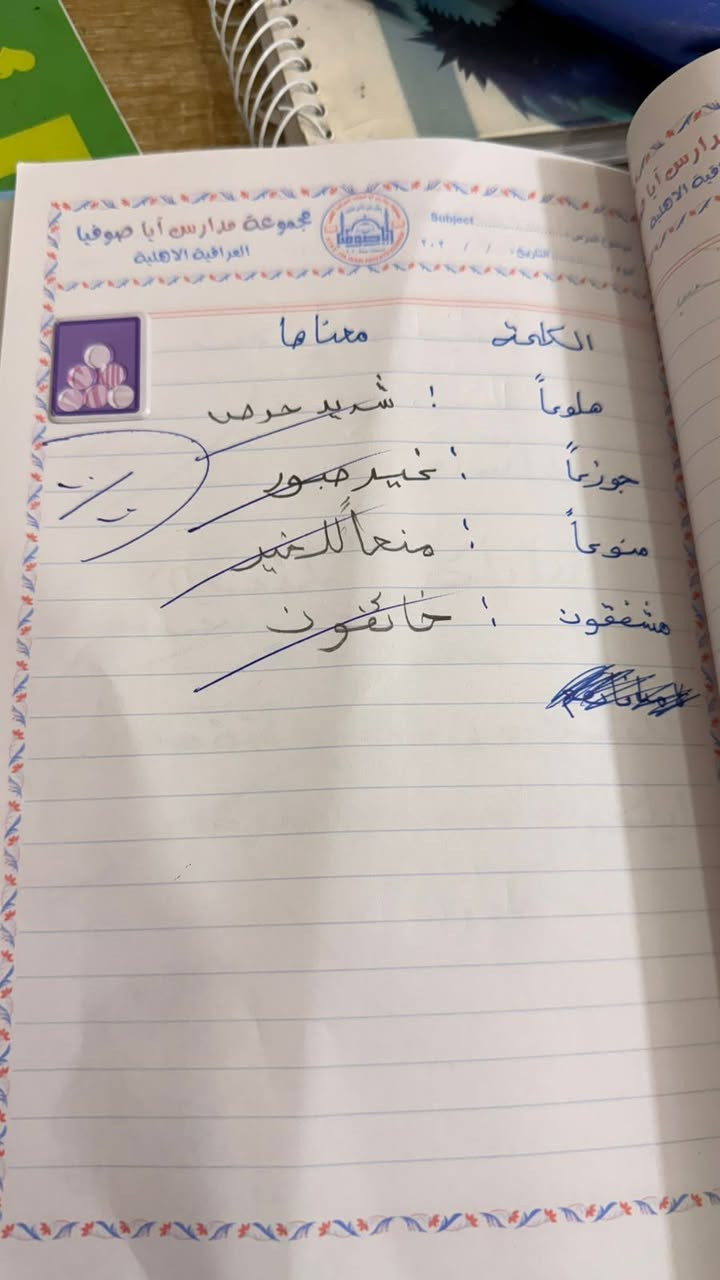 مجموعة مدارس آيا صوفيا
العراقية الاهلية
آيا صوفيا
Subject
التاريخ: / / ٢٠٢
مدارس آيا
الكلمة معناها
هلوعاً : شديد حرص
جوزعاً : غير صبور
منوعاً : منعاً للخير
مشفقون : خائفون